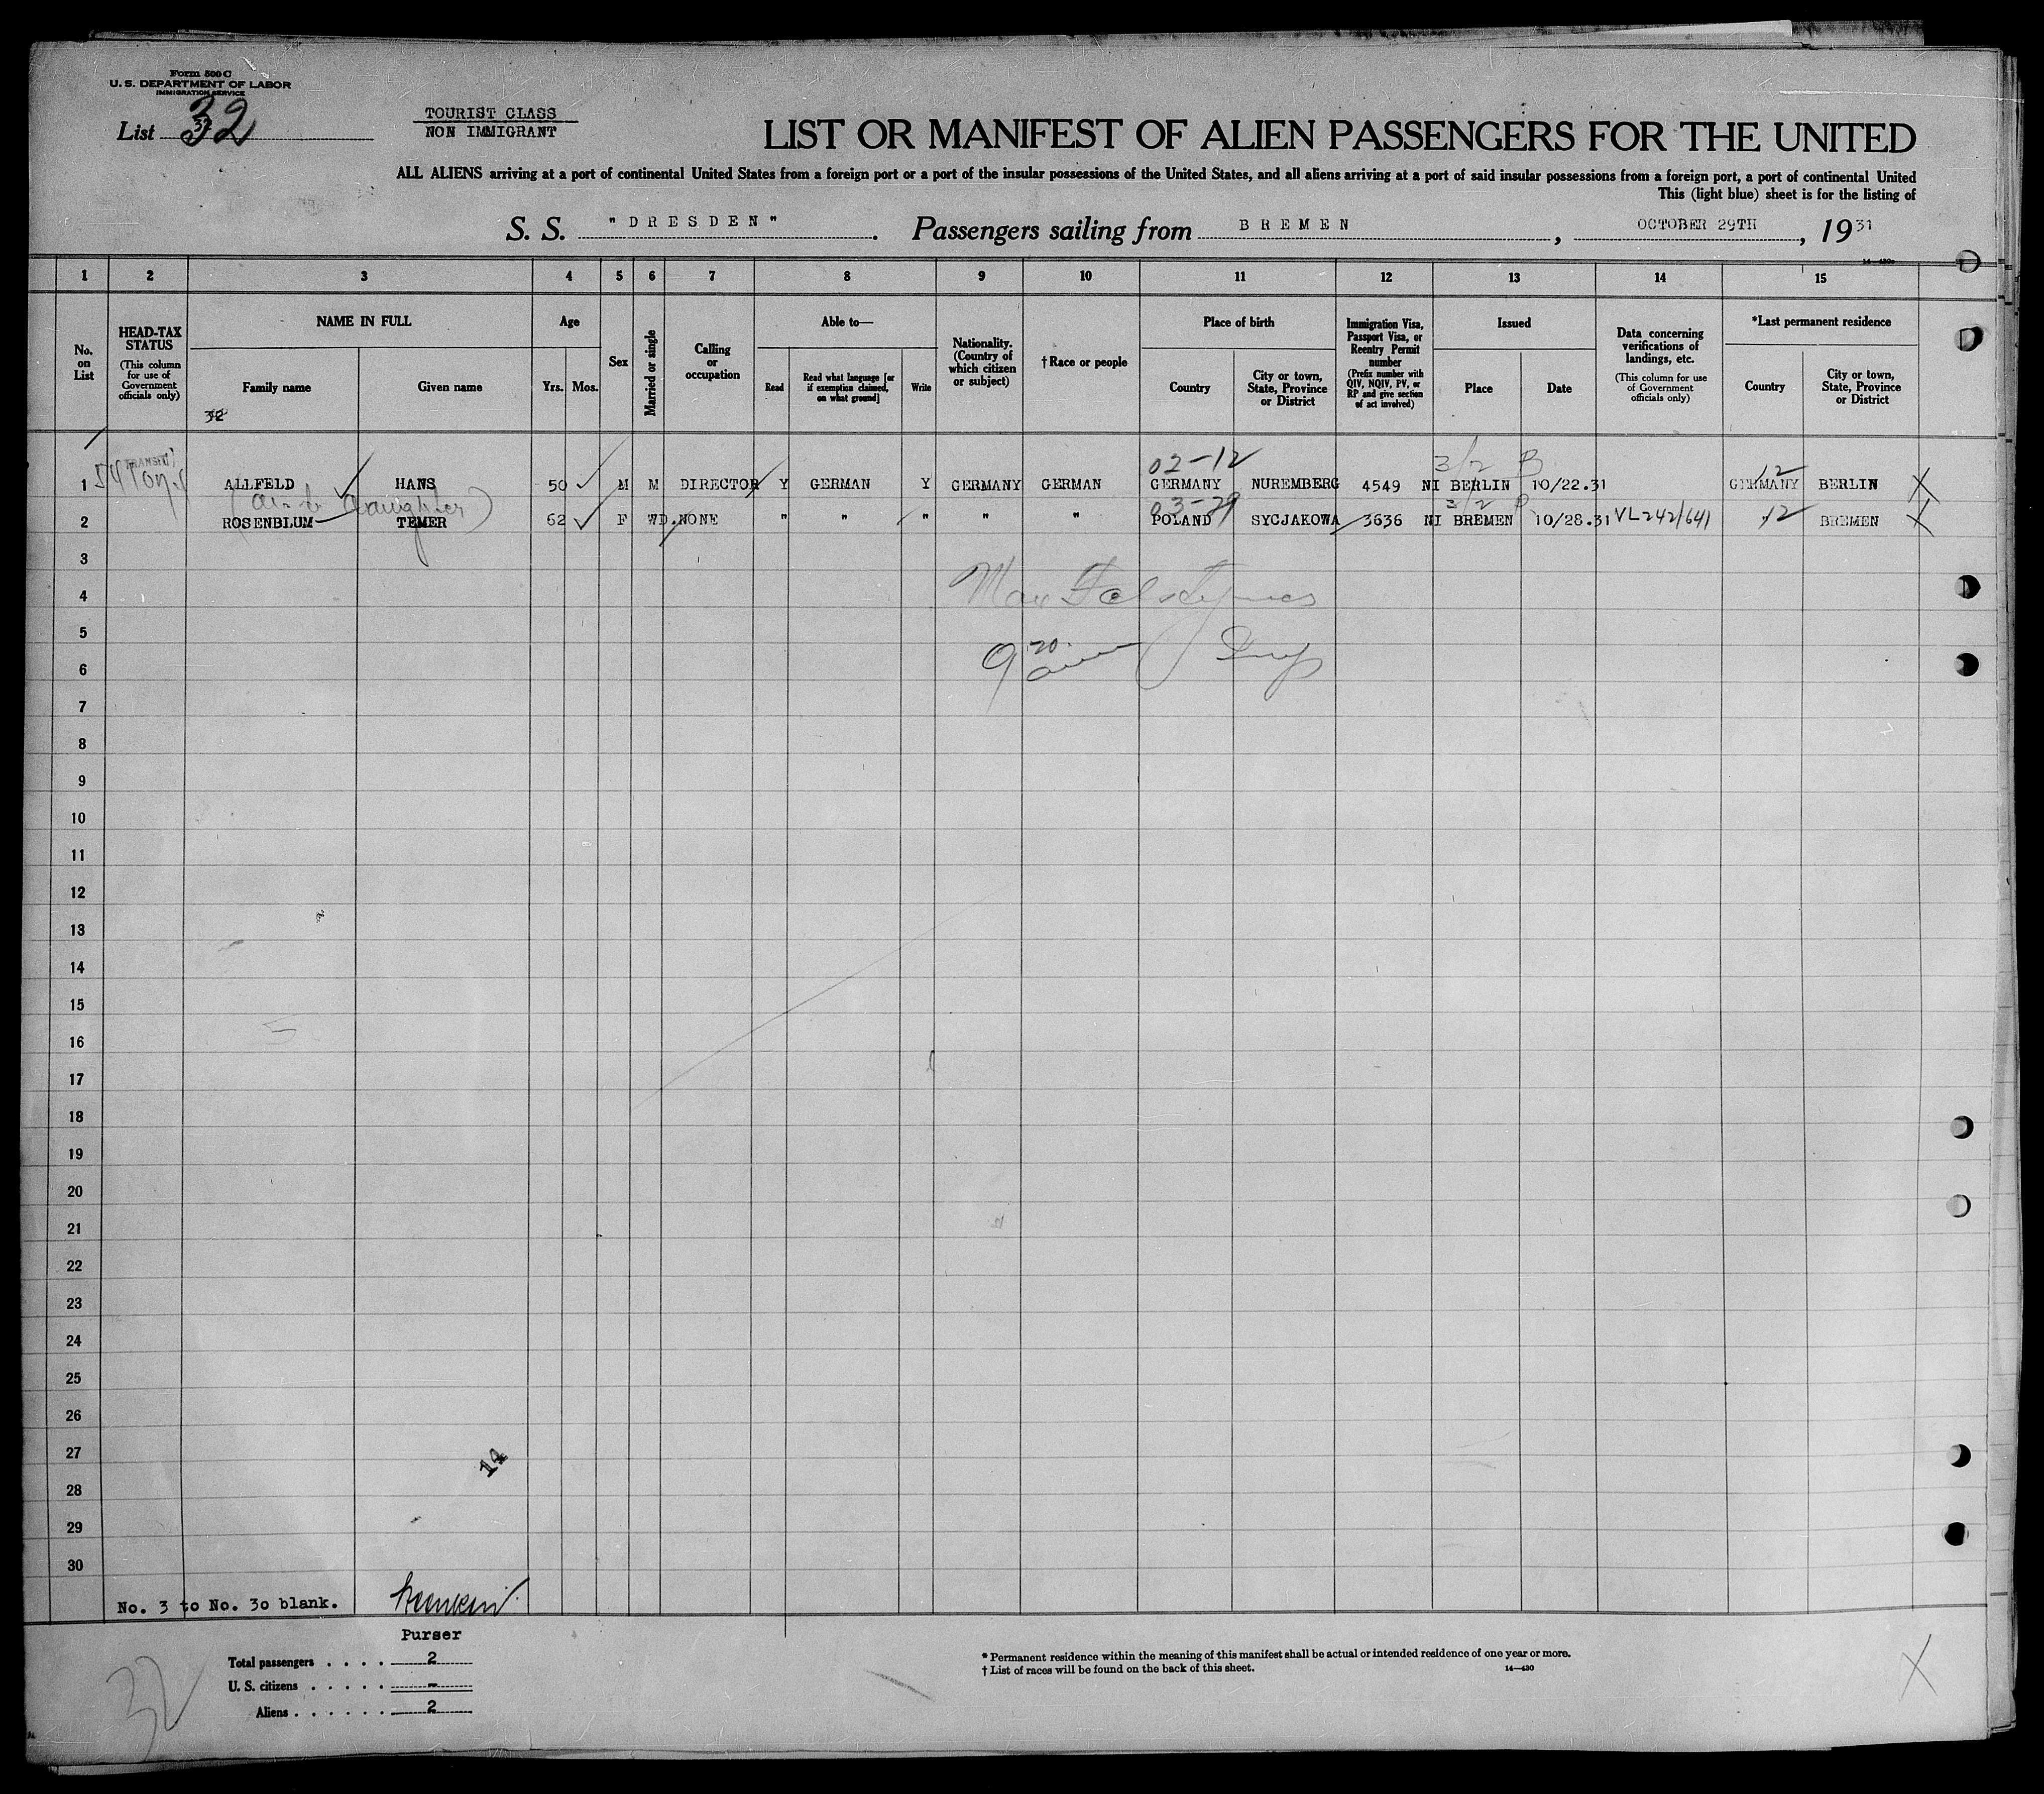 Form 500 C
U. S. DEPARTMENT OF LABOR
IMMIGRATION SERVICE
List 32
TOURIST CLASS
NON IMMIGRANT
LIST OR MANIFEST OF ALIEN PASSENGERS FOR THE UNITED
ALL ALIENS arriving at a port of continental United States from a foreign port or a port of the insular possessions of the United States, and all aliens arriving at a port of said insular possessions from a foreign port, a port of continental United
This (light blue) sheet is for the listing of
S. S. "DRESDEN". Passengers sailing from BREMEN, OCTOBER 29TH, 1931
14—430a
1 2 3 4 5 6 7 8 9 10 11 12 13 14 15
No. on List
HEAD-TAX STATUS
(This column for use of Government officials only)
NAME IN FULL
Family name
Given name
32
Age
Yrs. Mos.
Sex
Married or single
Calling or occupation
Able to—
Read
Read what language [or if exemption claimed, on what ground]
Write
Nationality. (Country of which citizen or subject)
†Race or people
Place of birth
Country
City or town, State, Province or District
Immigration Visa, Passport Visa, or Reentry Permit number
(Prefix number with QIV, NQIV, PV, or RP and give section of act involved)
Issued
Place
Date
Data concerning verifications of landings, etc.
(This column for use of Government officials only)
*Last permanent residence
Country
City or town, State, Province or District
02-12 3/2 B 12
1 ALLFELD HANS 50 M M DIRECTOR Y GERMAN Y GERMANY GERMAN GERMANY NUREMBERG 4549 NI BERLIN 10/22.31 GERMANY BERLIN X
daughter)
03-29 3/2
2 ROSENBLUM TEMER 62 F WD. NONE " " " " " POLAND SYCJAKOWA 3636 NI BREMEN 10/28.31 VL242/641 12 BREMEN X
3
4
5
6
7
8
9
10
11
12
13
14
15
16
17
18
19
20
21
22
23
24
25
26
27
14
28
29
30
No. 3 to No. 30 blank.
Purser
Total passengers . . . . 2
U. S. citizens . . . . . -
Aliens . . . . . . 2
32
* Permanent residence within the meaning of this manifest shall be actual or intended residence of one year or more.
† List of races will be found on the back of this sheet.
14—430
X